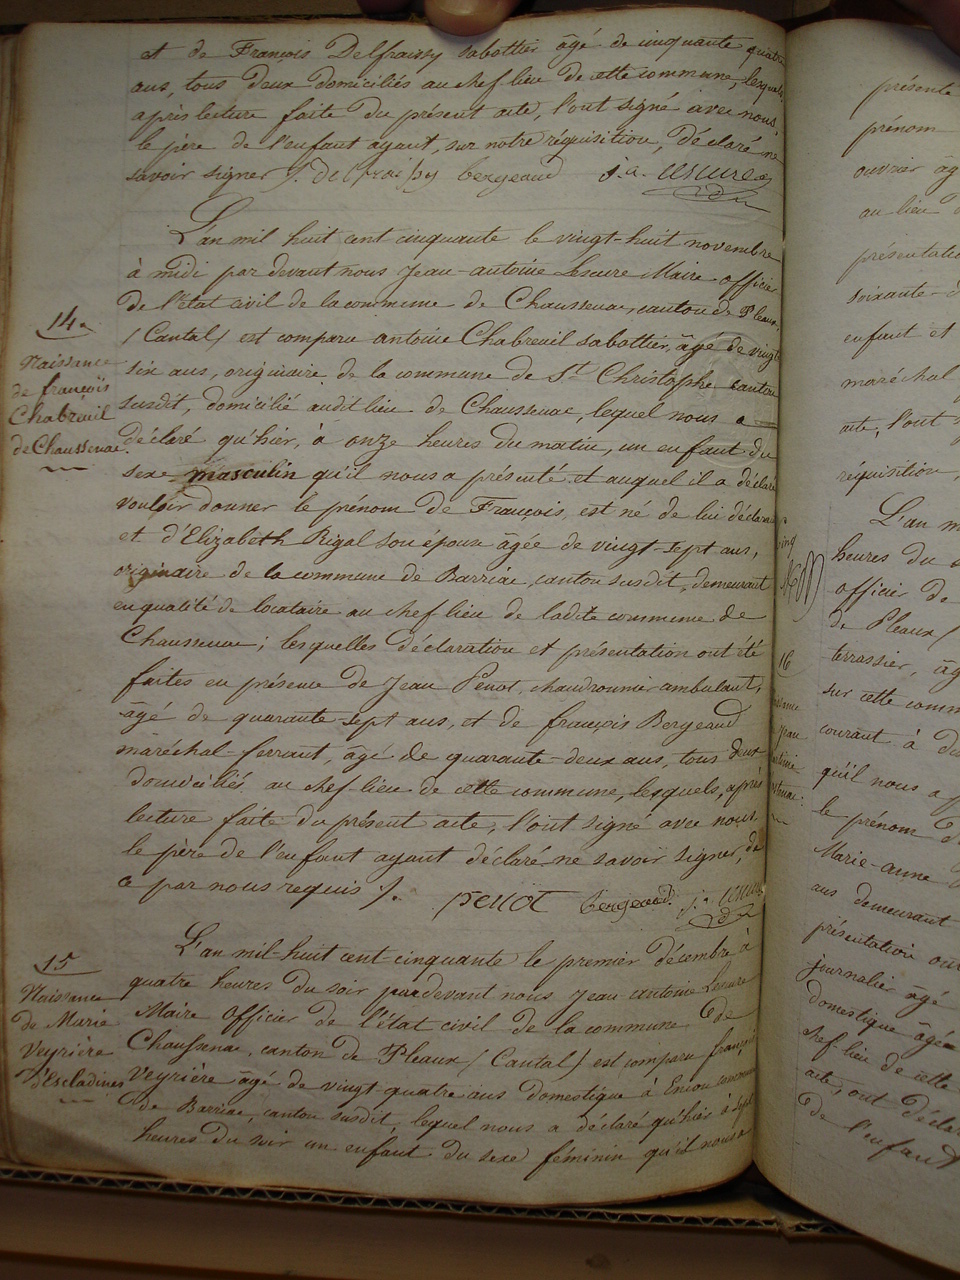 et de François Delfraissy sabottier âgé de cinquante quatre
ans, tous deux domiciliés au chef lieu de cette commune, lesquels,
après lecture faite du présent acte, l'ont signé avec nous,
le père de l'enfant ayant, sur notre réquisition, déclaré ne
savoir signer ƒ. delfraissy bergeaud j. a. Lescure
14e
Naissance
de françois
Chabreuil
de Chaussenac.
L'an mil huit cent cinquante le vingt-huit novembre
à midi par devant nous Jean-antoine Lescure Maire officier
de l'état civil de la commune de Chaussenac, canton de Pleaux
(Cantal) est comparu antoine Chabreuil sabottier, âgé de vingt
six ans, originaire de la commune de St Christophe canton
susdit, domicilié audit lieu de Chaussenac, lequel nous a
déclaré qu'hier, à onze heures du matin, un enfant du
sexe masculin qu'il nous a présenté et auquel il a déclaré
vouloir donner le prénom de François, est né de lui déclarant
et d'Elizabeth Rigal son épouse âgée de vingt-sept ans,
originaire de la commune de Barriac, canton susdit, demeurant
en qualité de locataire au chef lieu de ladite commune de
Chaussenac; lesquelles déclaration et présentation ont été
faites en présence de Jean Penot, chaudronnier ambulant,
âgé de quarante-sept ans, et de françois Bergeaud
maréchal-ferrant, âgé de quarante-deux ans, tous deux
domiciliés au chef lieu de cette commune, lesquels, après
lecture faite du présent acte, l'ont signé avec nous
le père de l'enfant ayant déclaré ne savoir signer, de
ce par nous requis ƒ. penot Bergeaud. j. a. Lescure
15
Naissance
de Marie
Veyrière
d'Escladines
L'an mil-huit cent-cinquante le premier décembre à
quatre heures du soir pardevant nous Jean-antoine Lescure
Maire officier de l'état civil de la commune de
Chaussenac, canton de Pleaux (Cantal) est comparu françois
Veyrière âgé de vingt-quatre ans domestique à commune
de Barriac, canton susdit, lequel nous a déclaré qu'hier à sept
heures du soir un enfant du sexe féminin qu'il nous a
16
présenté
prénom
ouvrier âg
au lieu d
présentatio
soixante-
enfant et
maréchal
acte, l'ont
réquisition,
L'an m
heures du s
officier de
de Pleaux (
terrassier, âg
sur cette comm
courant à d
qu'il nous a p
le prénom d
Marie-anne
ans demeurant
présentation on
journalier âgé
domestique âgé
chef-lieu de cette
acte, ont déclar
de l'enfant